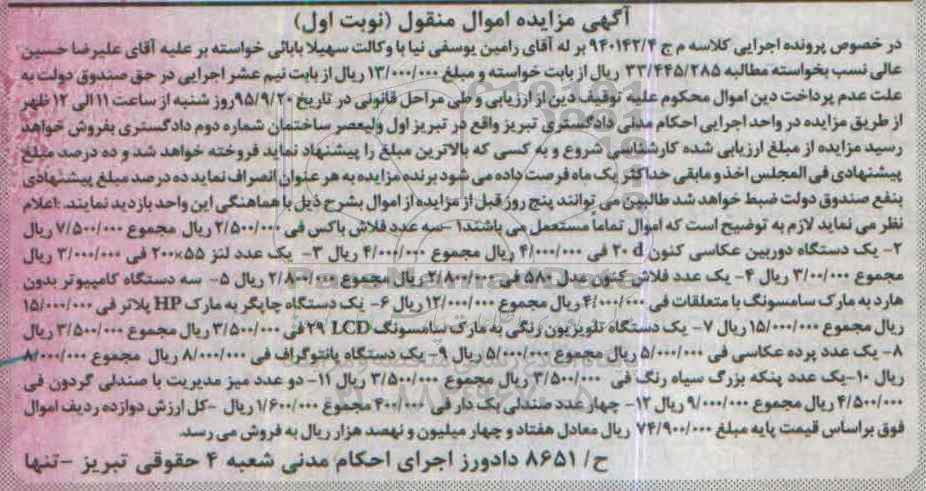 آگهی مزایده اموال منقول (نوبت اول)
در خصوص پرونده اجرایی کلاسه م ج ۹۴۰۱۴۲/۴ بر له آقای رامین یوسفی نیا با وکالت سهیلا بابائی خواسته بر علیه آقای علیرضا حسین
عالی نسب بخواسته مطالبه ۳۳/۴۴۵/۲۸۵ ریال از بابت خواسته و مبلغ ۱۳/۰۰۰/۰۰۰ ریال از بابت نیم عشر اجرایی در حق صندوق دولت به
علت عدم پرداخت دین اموال محکوم علیه توقیف دین از ارزیابی و طی مراحل قانونی در تاریخ ۹۵/۹/۲۰ روز شنبه از ساعت ۱۱ الی ۱۲ ظهر
از طریق مزایده در واحد اجرایی احکام مدنی دادگستری تبریز واقع در تبریز اول ولیعصر ساختمان شماره دوم دادگستری بفروش خواهد
رسید مزایده از مبلغ ارزیابی شده کارشناسی شروع و به کسی که بالاترین مبلغ را پیشنهاد نماید فروخته خواهد شد و ده درصد مبلغ
پیشنهادی فی المجلس اخذ و مابقی حداکثر یک ماه فرصت داده می شود برنده مزایده به هر عنوان انصراف نماید ده درصد مبلغ پیشنهادی
بنفع صندوق دولت ضبط خواهد شد طالبین می توانند پنج روز قبل از مزایده از اموال بشرح ذیل با هماهنگی این واحد بازدید نمایند. اعلام
نظر می نماید لازم به توضیح است که اموال تماماً مستعمل می باشند ۱- سه عدد فلاش باکس فی ۲/۵۰۰/۰۰۰ ریال مجموع ۷/۵۰۰/۰۰۰ ریال
۲- یک دستگاه دوربین عکاسی کنون ۲۰ d فی ۴/۰۰۰/۰۰۰ ریال مجموع ۴/۰۰۰/۰۰۰ ریال ۳- یک عدد لنز ۵۵×۲۰۰ فی ۳/۰۰۰/۰۰۰ ریال
مجموع ۳/۰۰/۰۰۰ ریال ۴- یک عدد فلاش کنون مدل ۵۸۰ فی ۲/۸۰۰/۰۰۰ ریال مجموع ۲/۸۰۰/۰۰۰ ریال ۵- سه دستگاه کامپیوتر بدون
هارد به مارک سامسونگ با متعلقات فی ۴/۰۰۰/۰۰۰ ریال مجموع ۱۲/۰۰۰/۰۰۰ ریال ۶- یک دستگاه چاپگر به مارک HP پلاتر فی ۱۵/۰۰۰/۰۰۰
ریال مجموع ۱۵/۰۰۰/۰۰۰ ریال ۷- یک دستگاه تلویزیون رنگی به مارک سامسونگ ۲۹ LCD فی ۳/۵۰۰/۰۰۰ ریال مجموع ۳/۵۰۰/۰۰۰ ریال
۸- یک عدد پرده عکاسی فی ۵/۰۰۰/۰۰۰ ریال مجموع ۵/۰۰۰/۰۰۰ ریال ۹- یک دستگاه پانتوگراف فی ۸/۰۰۰/۰۰۰ ریال مجموع ۸/۰۰۰/۰۰۰
ریال ۱۰- یک عدد پنکه بزرگ سیاه رنگ فی ۳/۵۰۰/۰۰۰ ریال مجموع ۳/۵۰۰/۰۰۰ ریال ۱۱- دو عدد میز مدیریت با صندلی گردون فی
۴/۵۰۰/۰۰۰ ریال مجموع ۹/۰۰۰/۰۰۰ ریال ۱۲- چهار عدد صندلی یک دار فی ۴۰۰/۰۰۰ مجموع ۱/۶۰۰/۰۰۰ ریال -کل ارزش دوازده ردیف اموال
فوق براساس قیمت پایه مبلغ ۷۴/۹۰۰/۰۰۰ ریال معادل هفتاد و چهار میلیون و نهصد هزار ریال به فروش می رسد.
ح/ ۸۶۵۱ دادورز اجرای احکام مدنی شعبه ۴ حقوقی تبریز -تنها